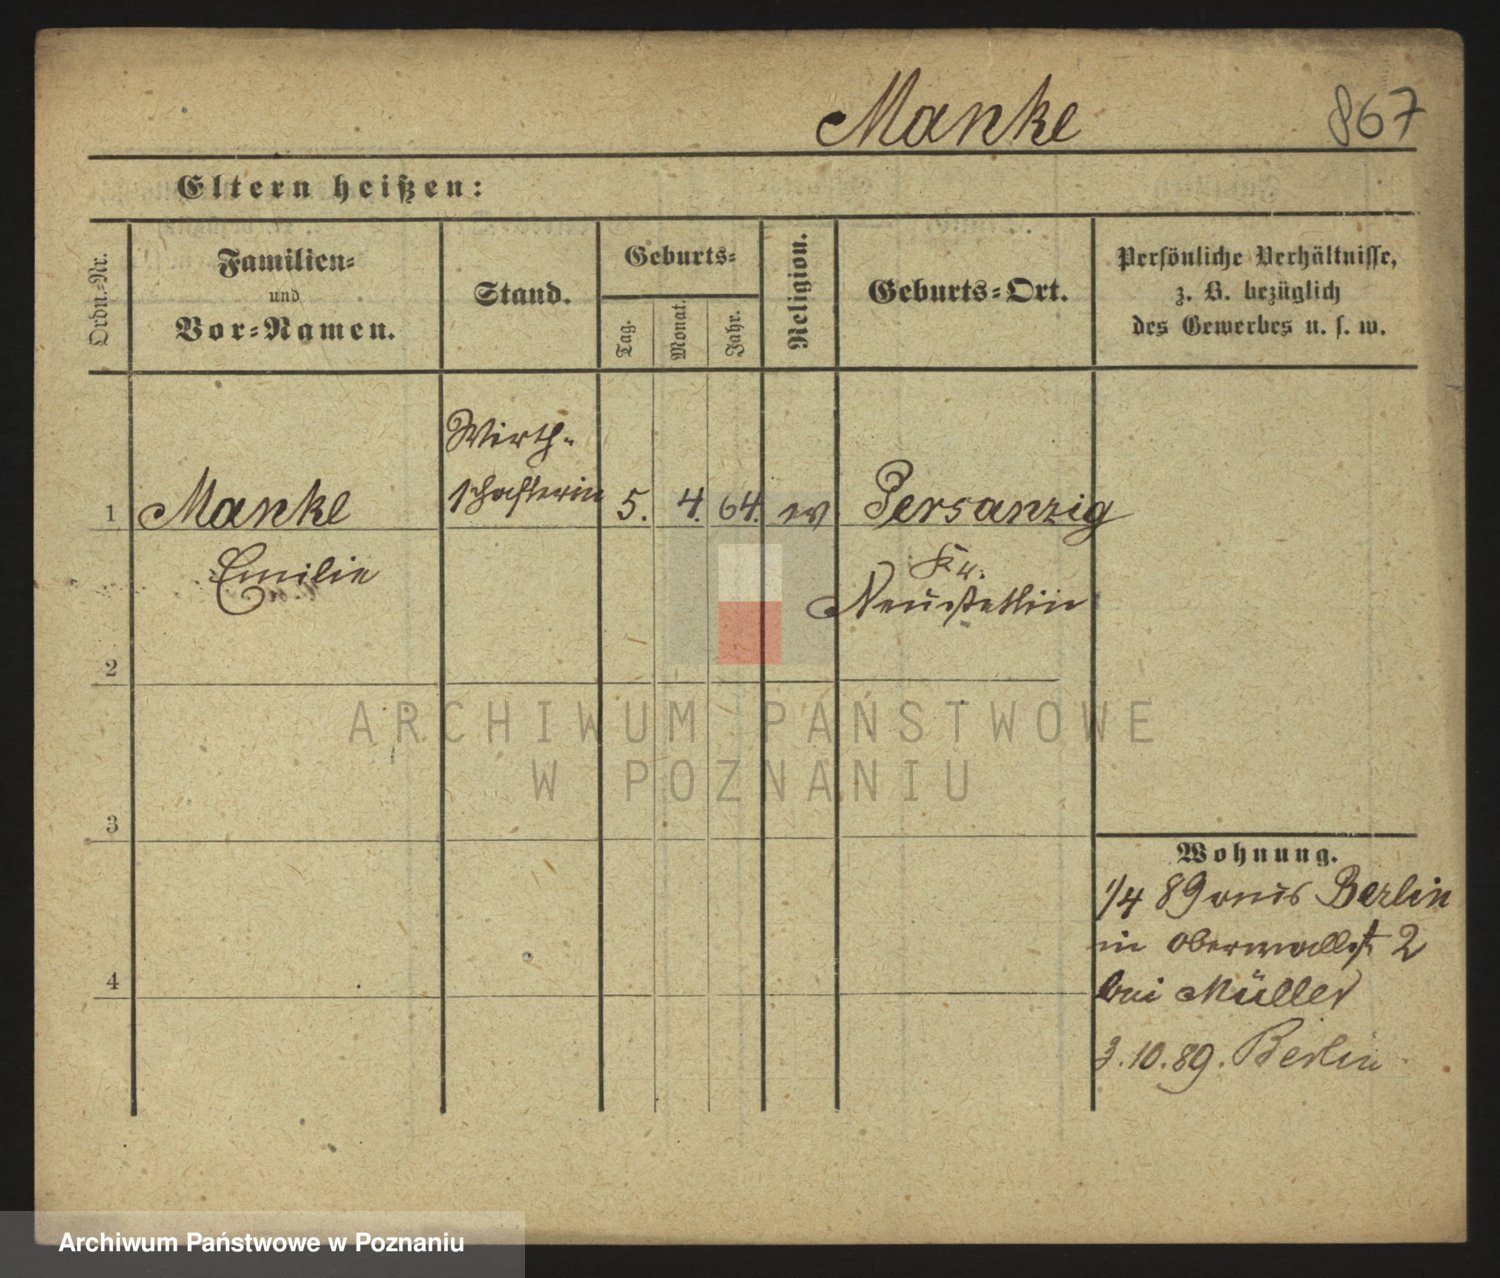 Manke 867
Eltern heißen:
Ordn.-Nr.
Familien-
und
Vor-Namen.
Stand.
Geburts-
Tag.
Monat.
Jahr.
Religion.
Geburts-Ort.
Persönliche Verhältnisse,
z. B. bezüglich
des Gewerbes u. s. w.
1 Manke
Emilie
Wirth-
schafterin
5. 4. 64. ev
Persanzig
Kr.
Neustettin
2
3
4
Wohnung.
1/4 89 aus Berlin
in Oberwallst 2
bei Müller
3.10.89. Berlin
ARCHIWUM PAŃSTWOWE
W POZNANIU
Archiwum Państwowe w Poznaniu